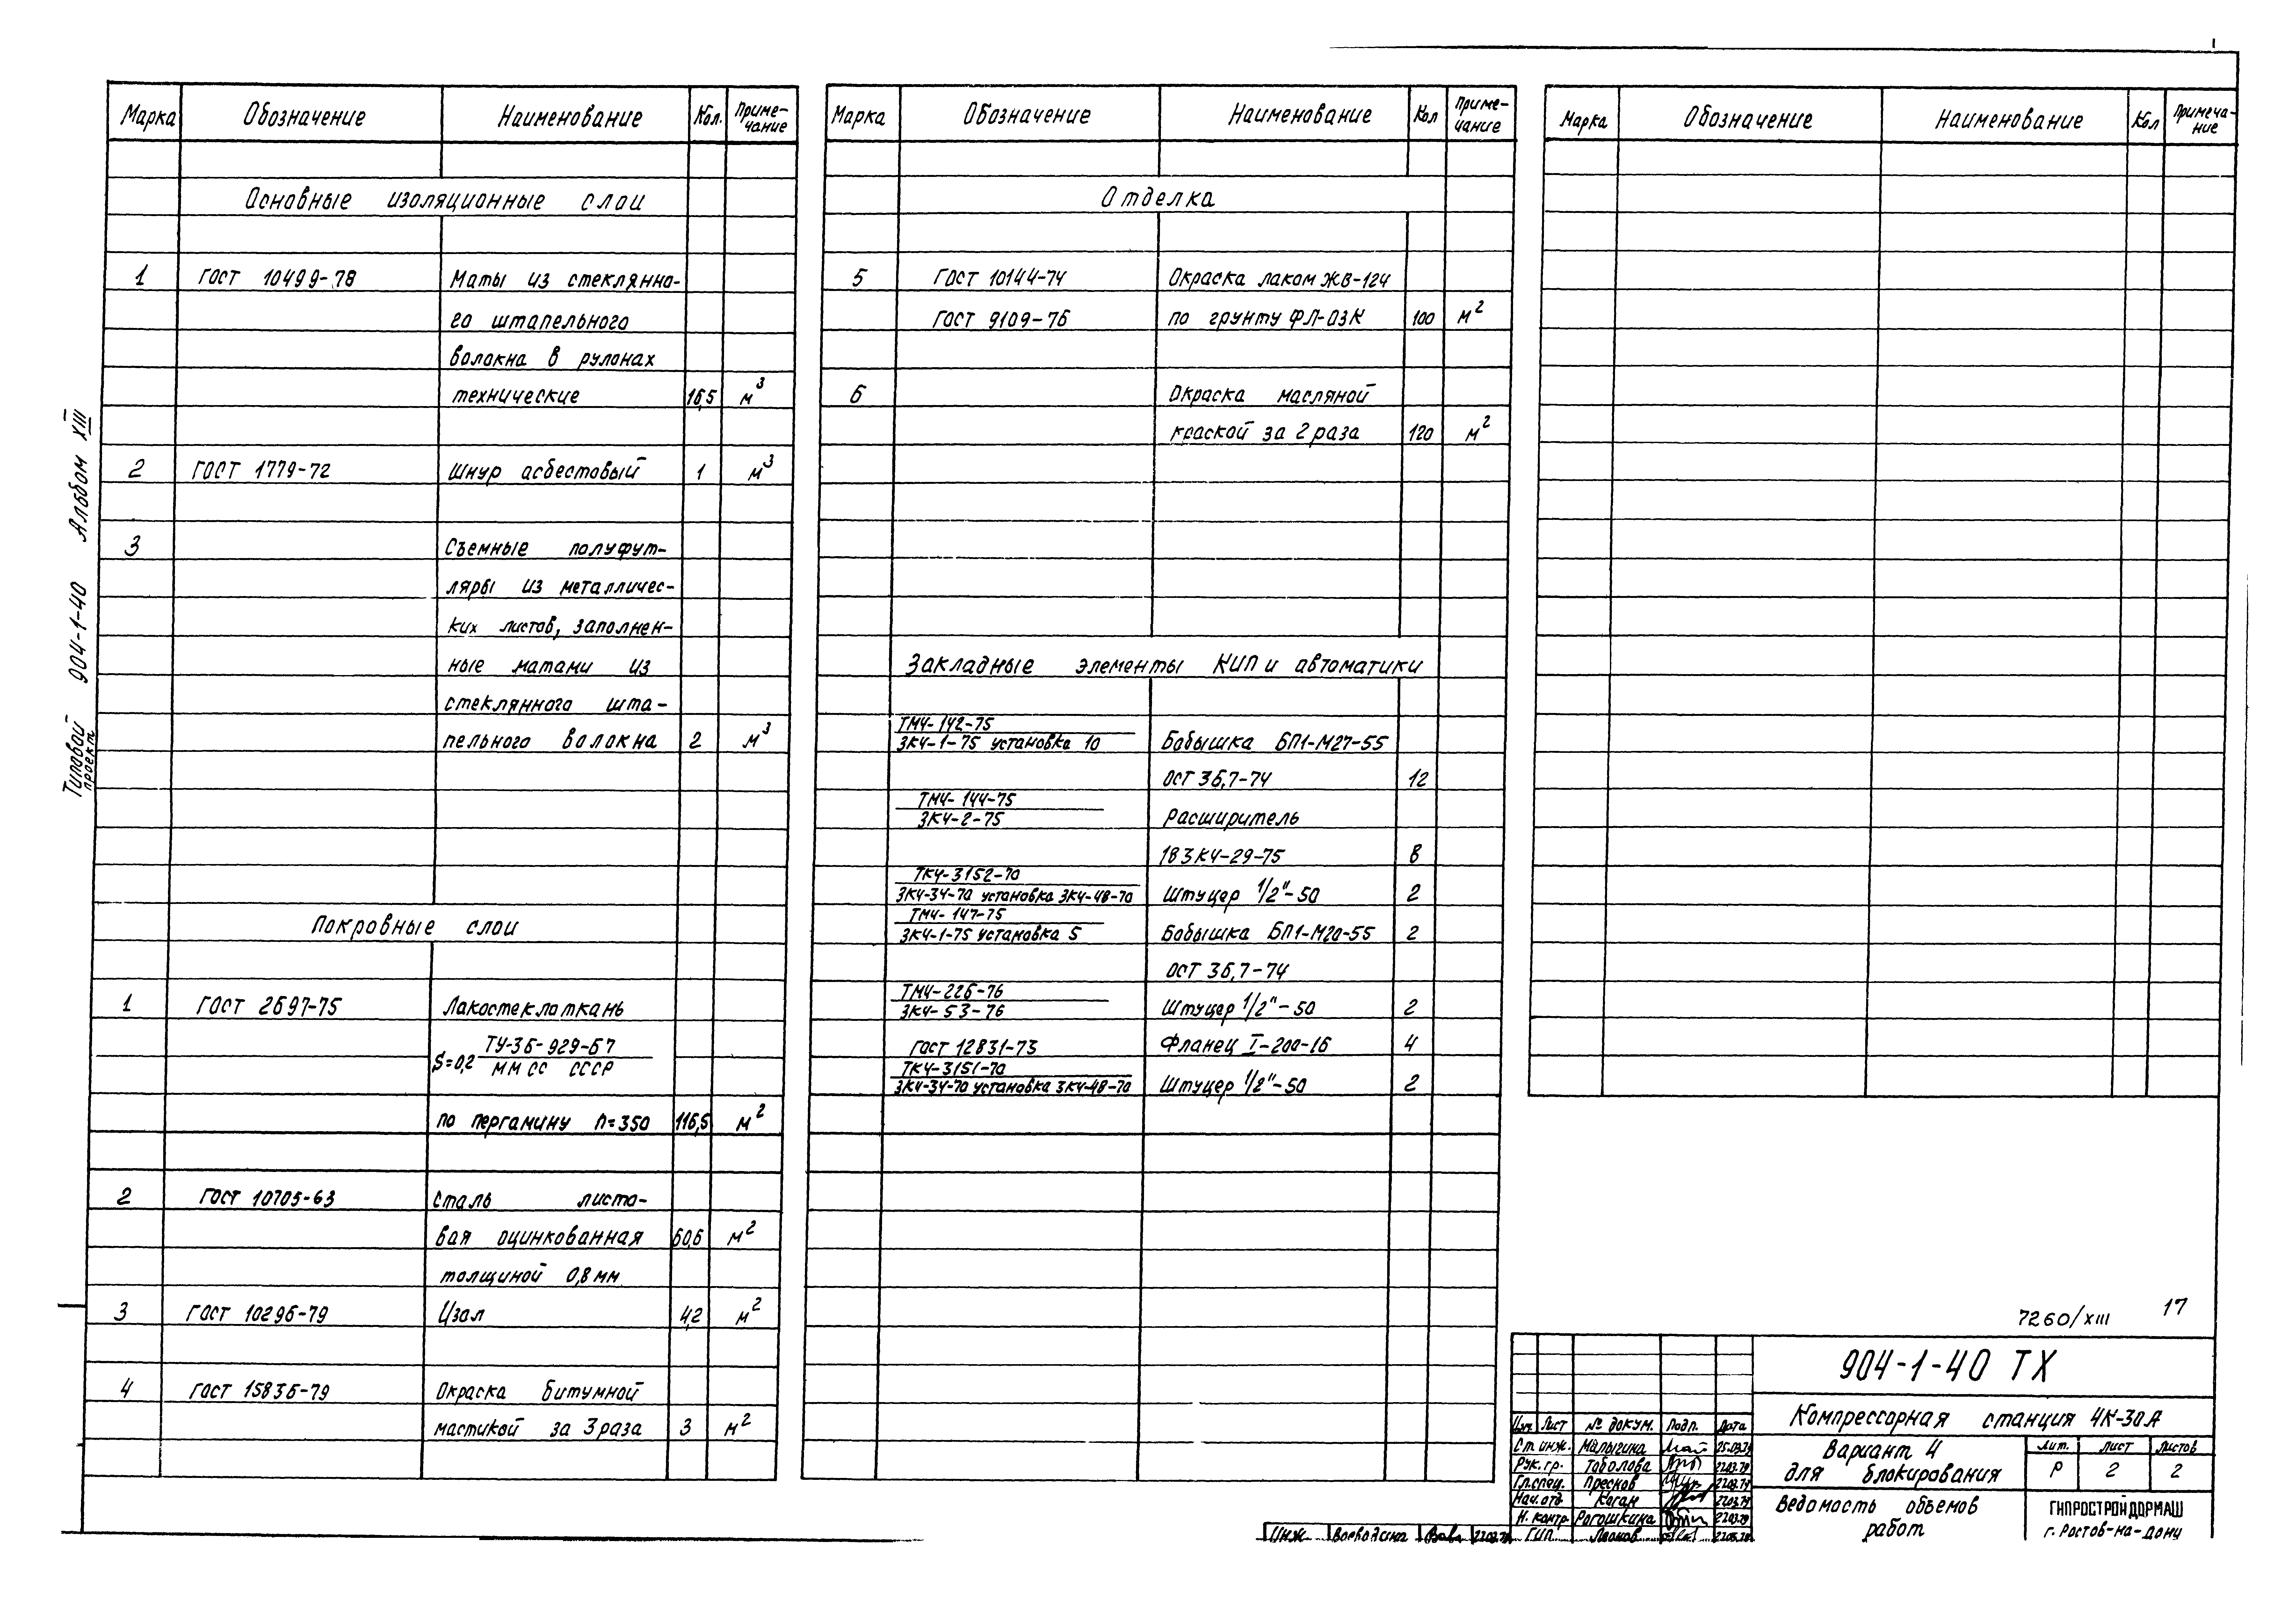 Типовой проект 904-1-40 Альбом XIII
Марка Обозначение Наименование Кол. Приме-
чание
Основные изоляционные слои
1 ГОСТ 10499-78 Маты из стеклянно-
го штапельного
волокна в рулонах
технические 16,5 м³
2 ГОСТ 1779-72 Шнур асбестовый 1 м³
3 Съемные полуфут-
ляры из металличес-
ких листов, заполнен-
ные матами из
стеклянного шта-
пельного волокна 2 м³
Покровные слои
1 ГОСТ 2697-75 Лакостеклоткань
S=0,2 ТУ-36-929-67
ММСС СССР
по пергамину П=350 116,5 м²
2 ГОСТ 10705-63 Сталь листо-
вая оцинкованная 60,6 м²
толщиной 0,8мм
3 ГОСТ 10296-79 Изол 4,2 м²
4 ГОСТ 15836-79 Окраска битумной
мастикой за 3 раза 3 м²
Марка Обозначение Наименование Кол Приме-
чание
Отделка
5 ГОСТ 10144-74 Окраска лаком ЖВ-124
ГОСТ 9109-76 по грунту ФЛ-03К 100 м²
6 Окраска масляной
краской за 2 раза 120 м²
Закладные элементы КИП и автоматики
ТМ4-142-75
ЗК4-1-75 установка 10 Бобышка БП1-М27-55
ОСТ 36,7-74 12
ТМ4-144-75
ЗК4-2-75 Расширитель
18ЗК4-29-75 8
ТК4-3152-70
ЗК4-34-70 установка ЗК4-48-70 Штуцер 1/2"-50 2
ТМ4-147-75
ЗК4-1-75 установка 5 Бобышка БП1-М20-55 2
ОСТ 36,7-74
ТМ4-226-76
ЗК4-53-76 Штуцер 1/2"-50 2
ГОСТ 12831-73 Фланец I-200-16 4
ТК4-3151-70
ЗК4-34-70 установка ЗК4-48-70 Штуцер 1/2"-50 2
Марка Обозначение Наименование Кол Примеча-
ние
7260/XIII 17
904-1-40 ТХ
Компрессорная станция 4К-30А
Изм. Лист № докум. Подп. Дата
Ст. инж. Малыгина
Рук. гр. Тоболова 22.03.79
Гл. спец. Пресков 22.03.79
Нач. отд. Коган 22.03.79
Н. контр. Рогошкина 22.03.79
ГИП
Инж.
Вариант 4
для блокирования
Лит. Лист Листов
Р 2 2
Ведомость объемов
работ
ГИПРОСТРОЙДОРМАШ
г. Ростов-на-Дону